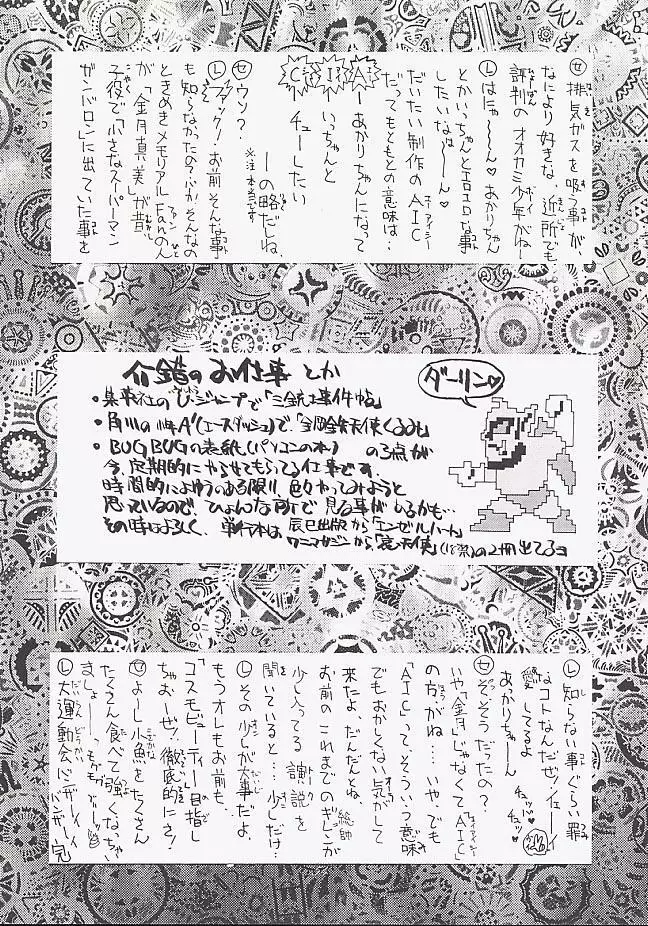 セ 排気ガスを吸う事が、
なにより好きな、近所でも
評判のオオカミ少年がねー
L はにゃ～～ん♡あかりちゃん
とかいっちゃんとエロエロな事
したいなぁ～～ん♡
だいたい制作のAIC
だってもともとの意味は…
A―あかりちゃんになって
I―いっちゃんと
C チューしたい
―の略だしね。
※注 本気です
セ ウソ?
L ファック!お前そんな事
も知らなかったのか!そんなの
ときめきメモリアルFanのん
が「金月真美」が昔
子役で「小さなスーパーマン
ガンバロン」に出ていた事を
介錯のお仕事とか
ダーリン♡
・集英社のVジャンプで「三銃士事件帖」
・角川の少年A'(エースダッシュ)で、「鋼鉄天使くるみ」
・BUGBUGの表紙(パソコンの本) の3点が
今、定期的にやらせてもらってる仕事です。
時間的によゆうのある限り、色々やってみようと
思っているので、ひょんな所で見る事がしるかも…
その時はよろしく、単行本は辰巳出版から「エンゼルハート」
ワニマガジンから「天使」(18禁)の2冊出てるヨ
L 知らない事ぐらい罪
なコトなんだぜッイェーイ
愛してるよ
あっかりちゃーん チュッ♡チュッ♡
セ そ、そうだったの?
いや「金月」じゃなくて「AIC」
の方がね…。いや、でも
「AIC」って、そういう意味
でもおかしくない気がして
来たよ、だんだんとね
お前のこれまでのギレン総帥が
少し入ってる演説を
聞いていると…少しだけ…
L その少しが大事だよ。
もうオレもお前も、
「コスモビューティー」目指し
ちゃおーぜ!徹底的にさ!
セ よーし小魚をたくさん
たくさん食べて強くなっちゃい
ましょーーっモグモグ
L 大運動会バンザーイイ
バンザーイ 完